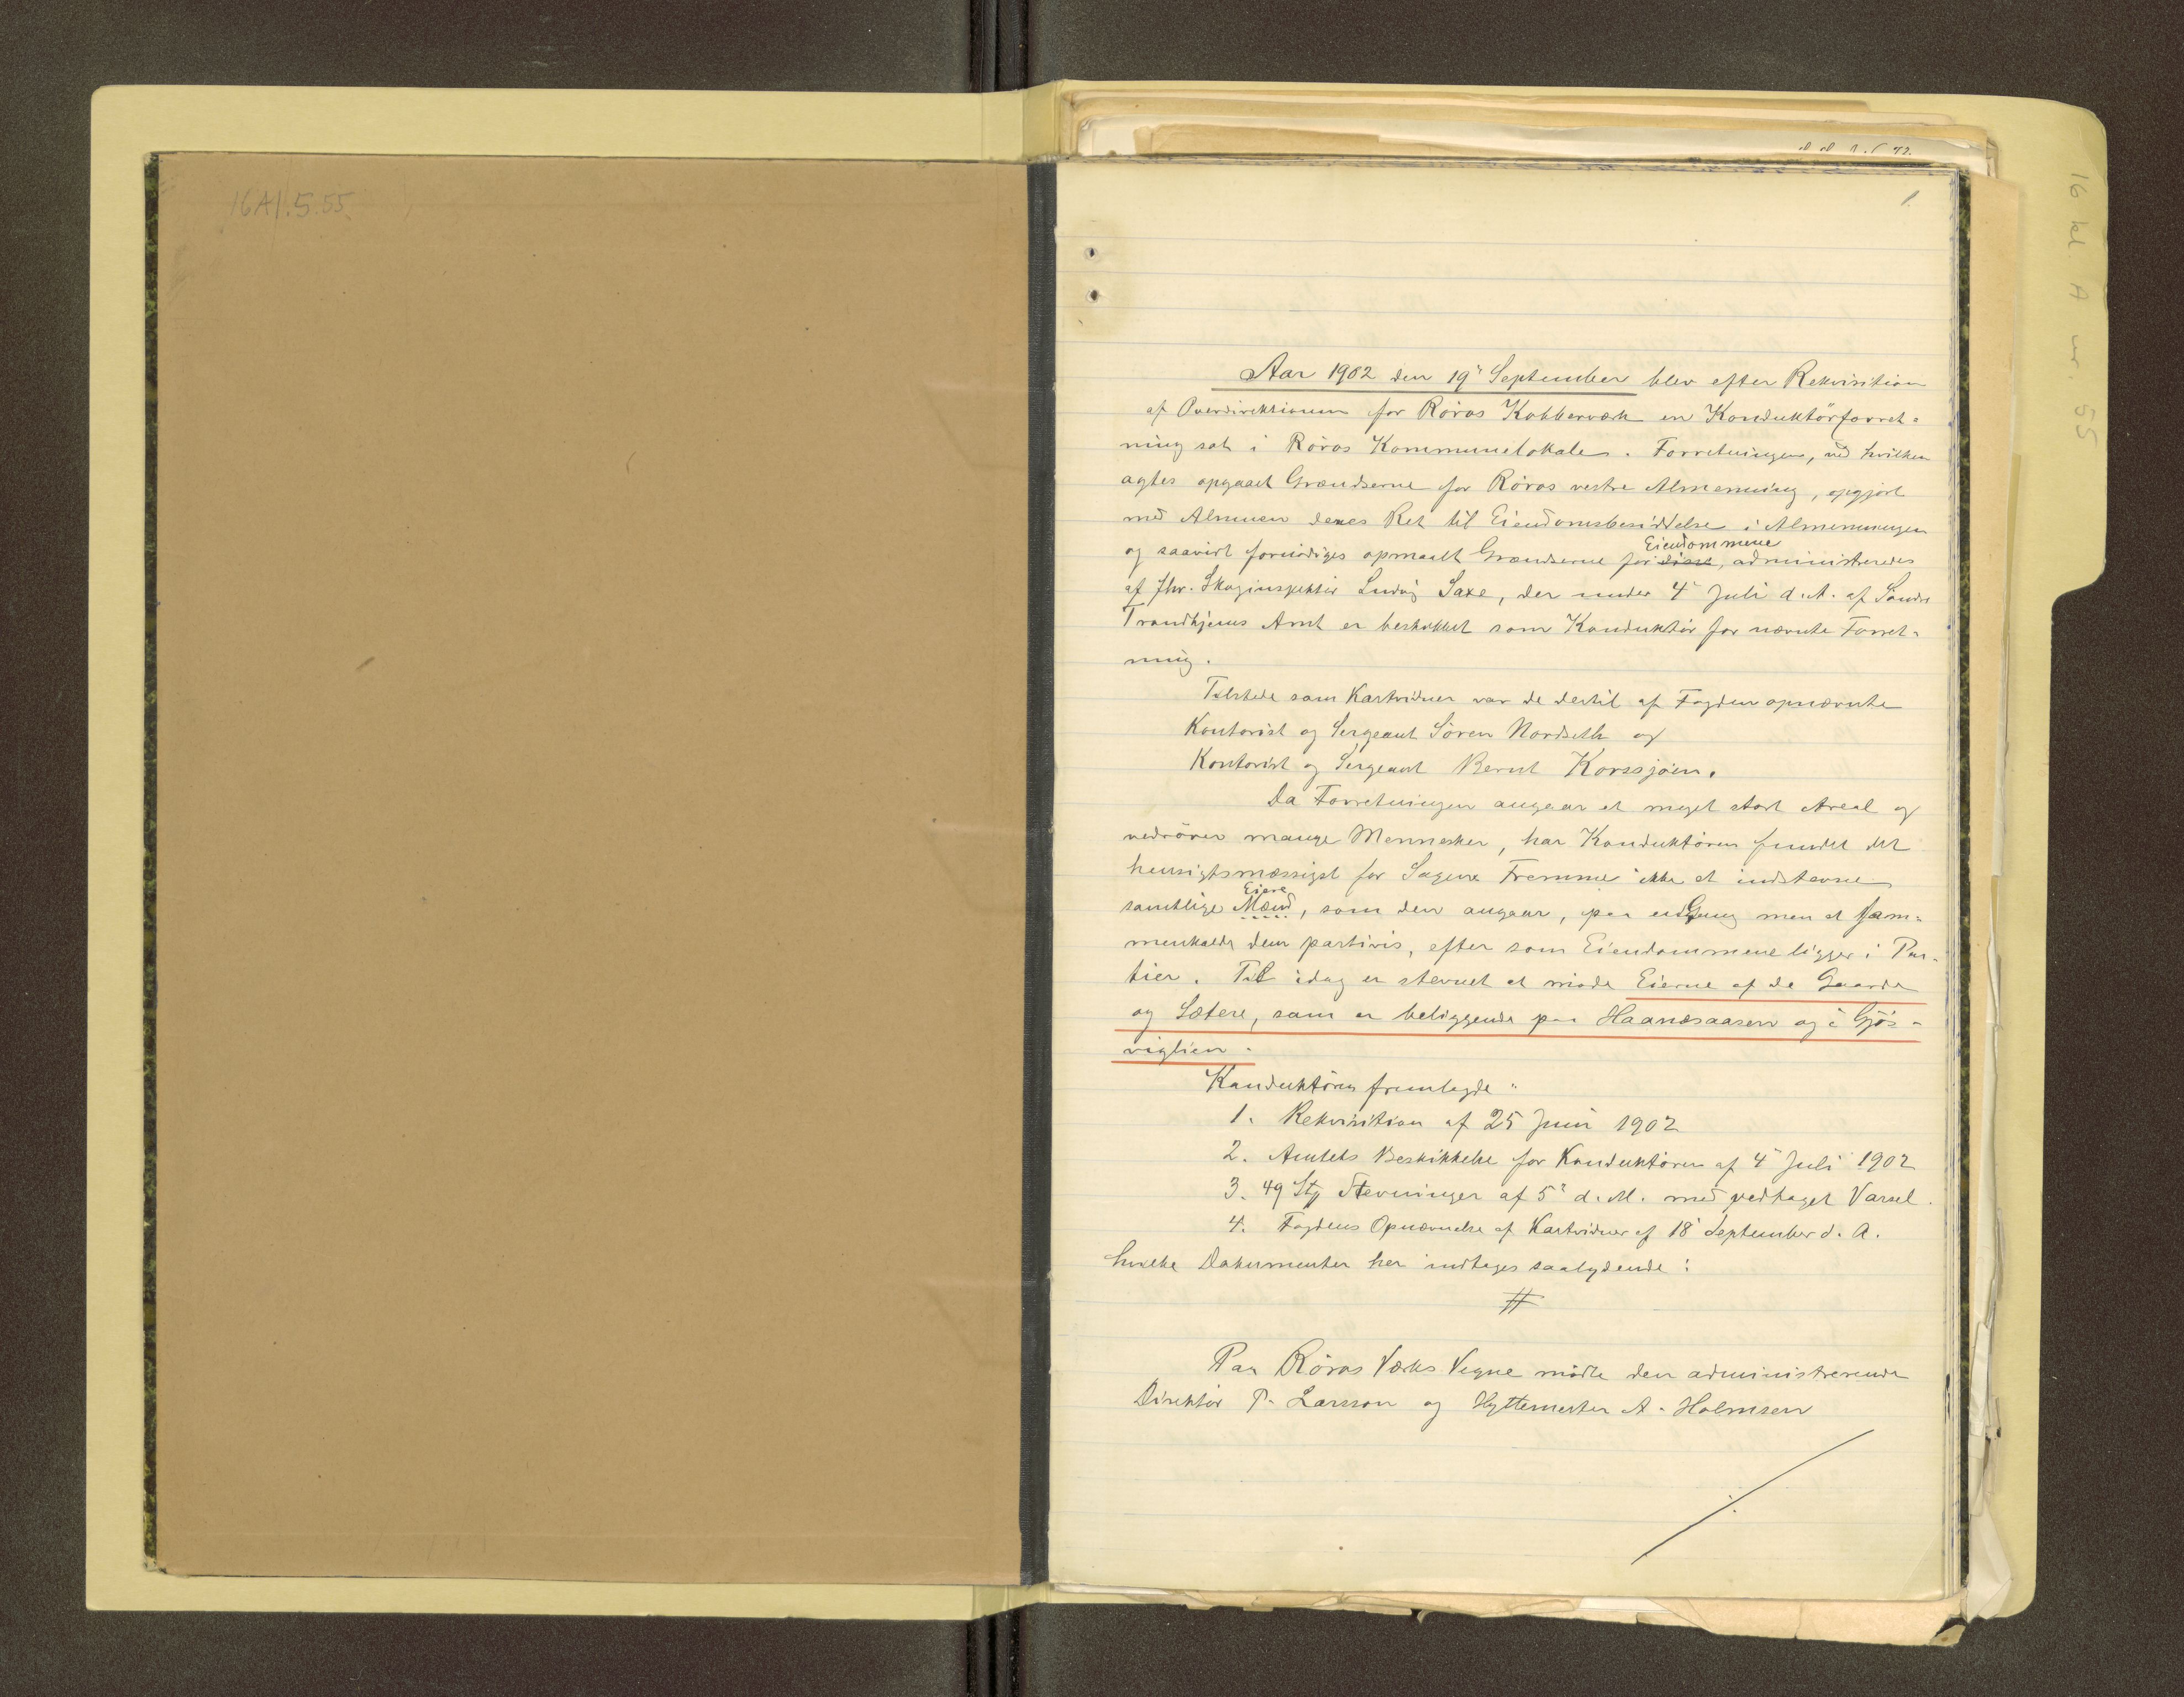 16A1.5.55.
1
16 kl A nr. 55
Aar 1902 den 19' September blev efter Rekvisition
af Overdirektionen for Röros Kobberværk en Konduktörforret-
ning sat i Röros Kommunelokale. Forretningen, ved hvilken
agtes opgaaet Grændserne for Röros vestre Almenning, opgjort
med Almuen denes Ret til Eiendomsbesiddelse i Almenningen
Eiendommene
og saavidt fornödiges opmaalt Grændserne for disse, administreredes
af fhv. Skoginspektör Ludvig Saxe, der under 4' Juli d. A. af Söndre
Trondhjems Amt er beskikket som Konduktör for nævnte Forret-
ning.
Tilstede som Kartvidner var de dertil af Fogden opnævnte
Kontorist og Sergeant Sören Nordseth og
Kontorist og Sergeant Bernt Korssjöen.
Da Forretningen angaar et meget stort Areal og
vedrörer mange Mennesker, har Konduktören fundet det
hensigtsmæssigst for Sagens Fremme ikke at indstevne
Eiere
samtlige Mænd, som den angaar, paa en Gang men at sam-
menkalde dem partivis, efter som Eiendommene ligger i Par-
tier. Til idag er stevnet at möde Eierne af de Gaarde
og Sætere, som er beliggende paa Haanesaasen og i Gjös-
viglien.
Konduktören fremlagde:
1. Rekvisition af 25 Juni 1902
2. Amtets Beskikkelse for Konduktören af 4' Juli 1902
3. 49 Stk Stevninger af 5' d. M. med vedtaget Varsel.
4. Fogdens Opnævnelse af Kartvidner af 18' September d. A.
hvilke Dokumenter her indtages saalydende:
#
Paa Röros Værks Vegne mödte den administrerende
Direktör P. Larsson og Hyttemester A. Holmsen